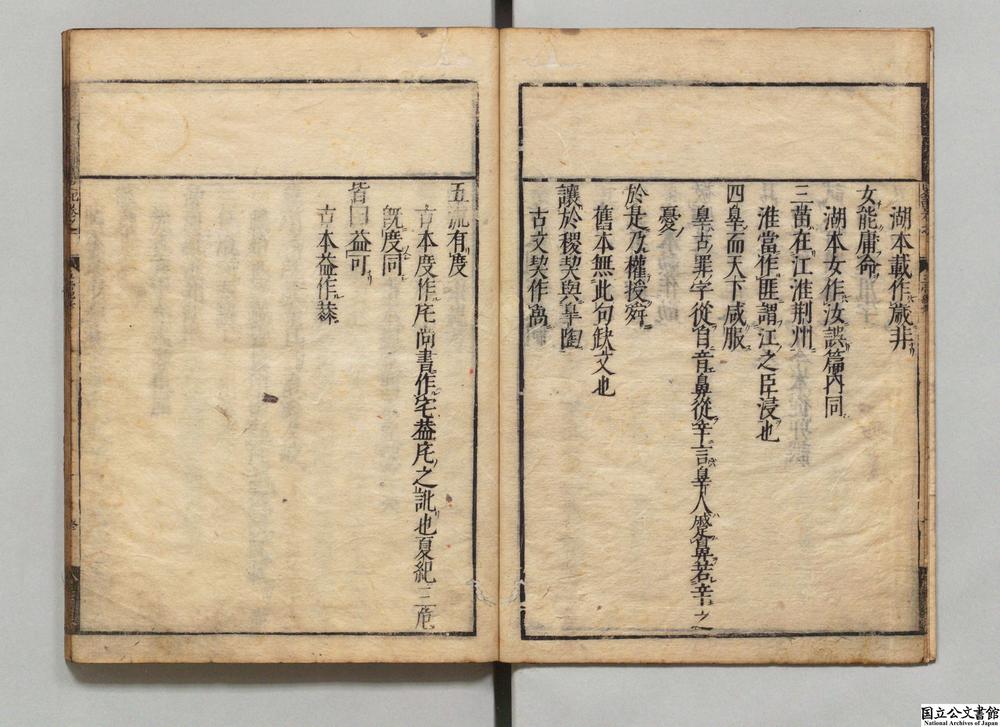 湖本載作歲非
女能庸命
湖本女作汝誤篇內同
三苗在江淮荆州
淮當作匪謂江之臣浸也
四辠而天下咸服
辠古罪字從自音鼻從辛言辠人蹙鼻若辛之
憂
於是乃權授舜
舊本無此句缺文也
讓於稷契與皐陶
古文契作卨
五流有度
古本度作㡯尚書作宅葢㡯之訛也夏紀三危
旣度同
皆曰益可
古本益作𦳝
国立公文書館
National Archives of Japan